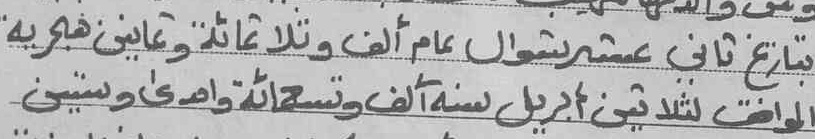 بتاريخ ثاني عشر شوال عام ألف وثلاثمائة وثمانين هجرية
الموافق لثلاثين أبريل سنة ألف وتسعمائة واحدى وستين